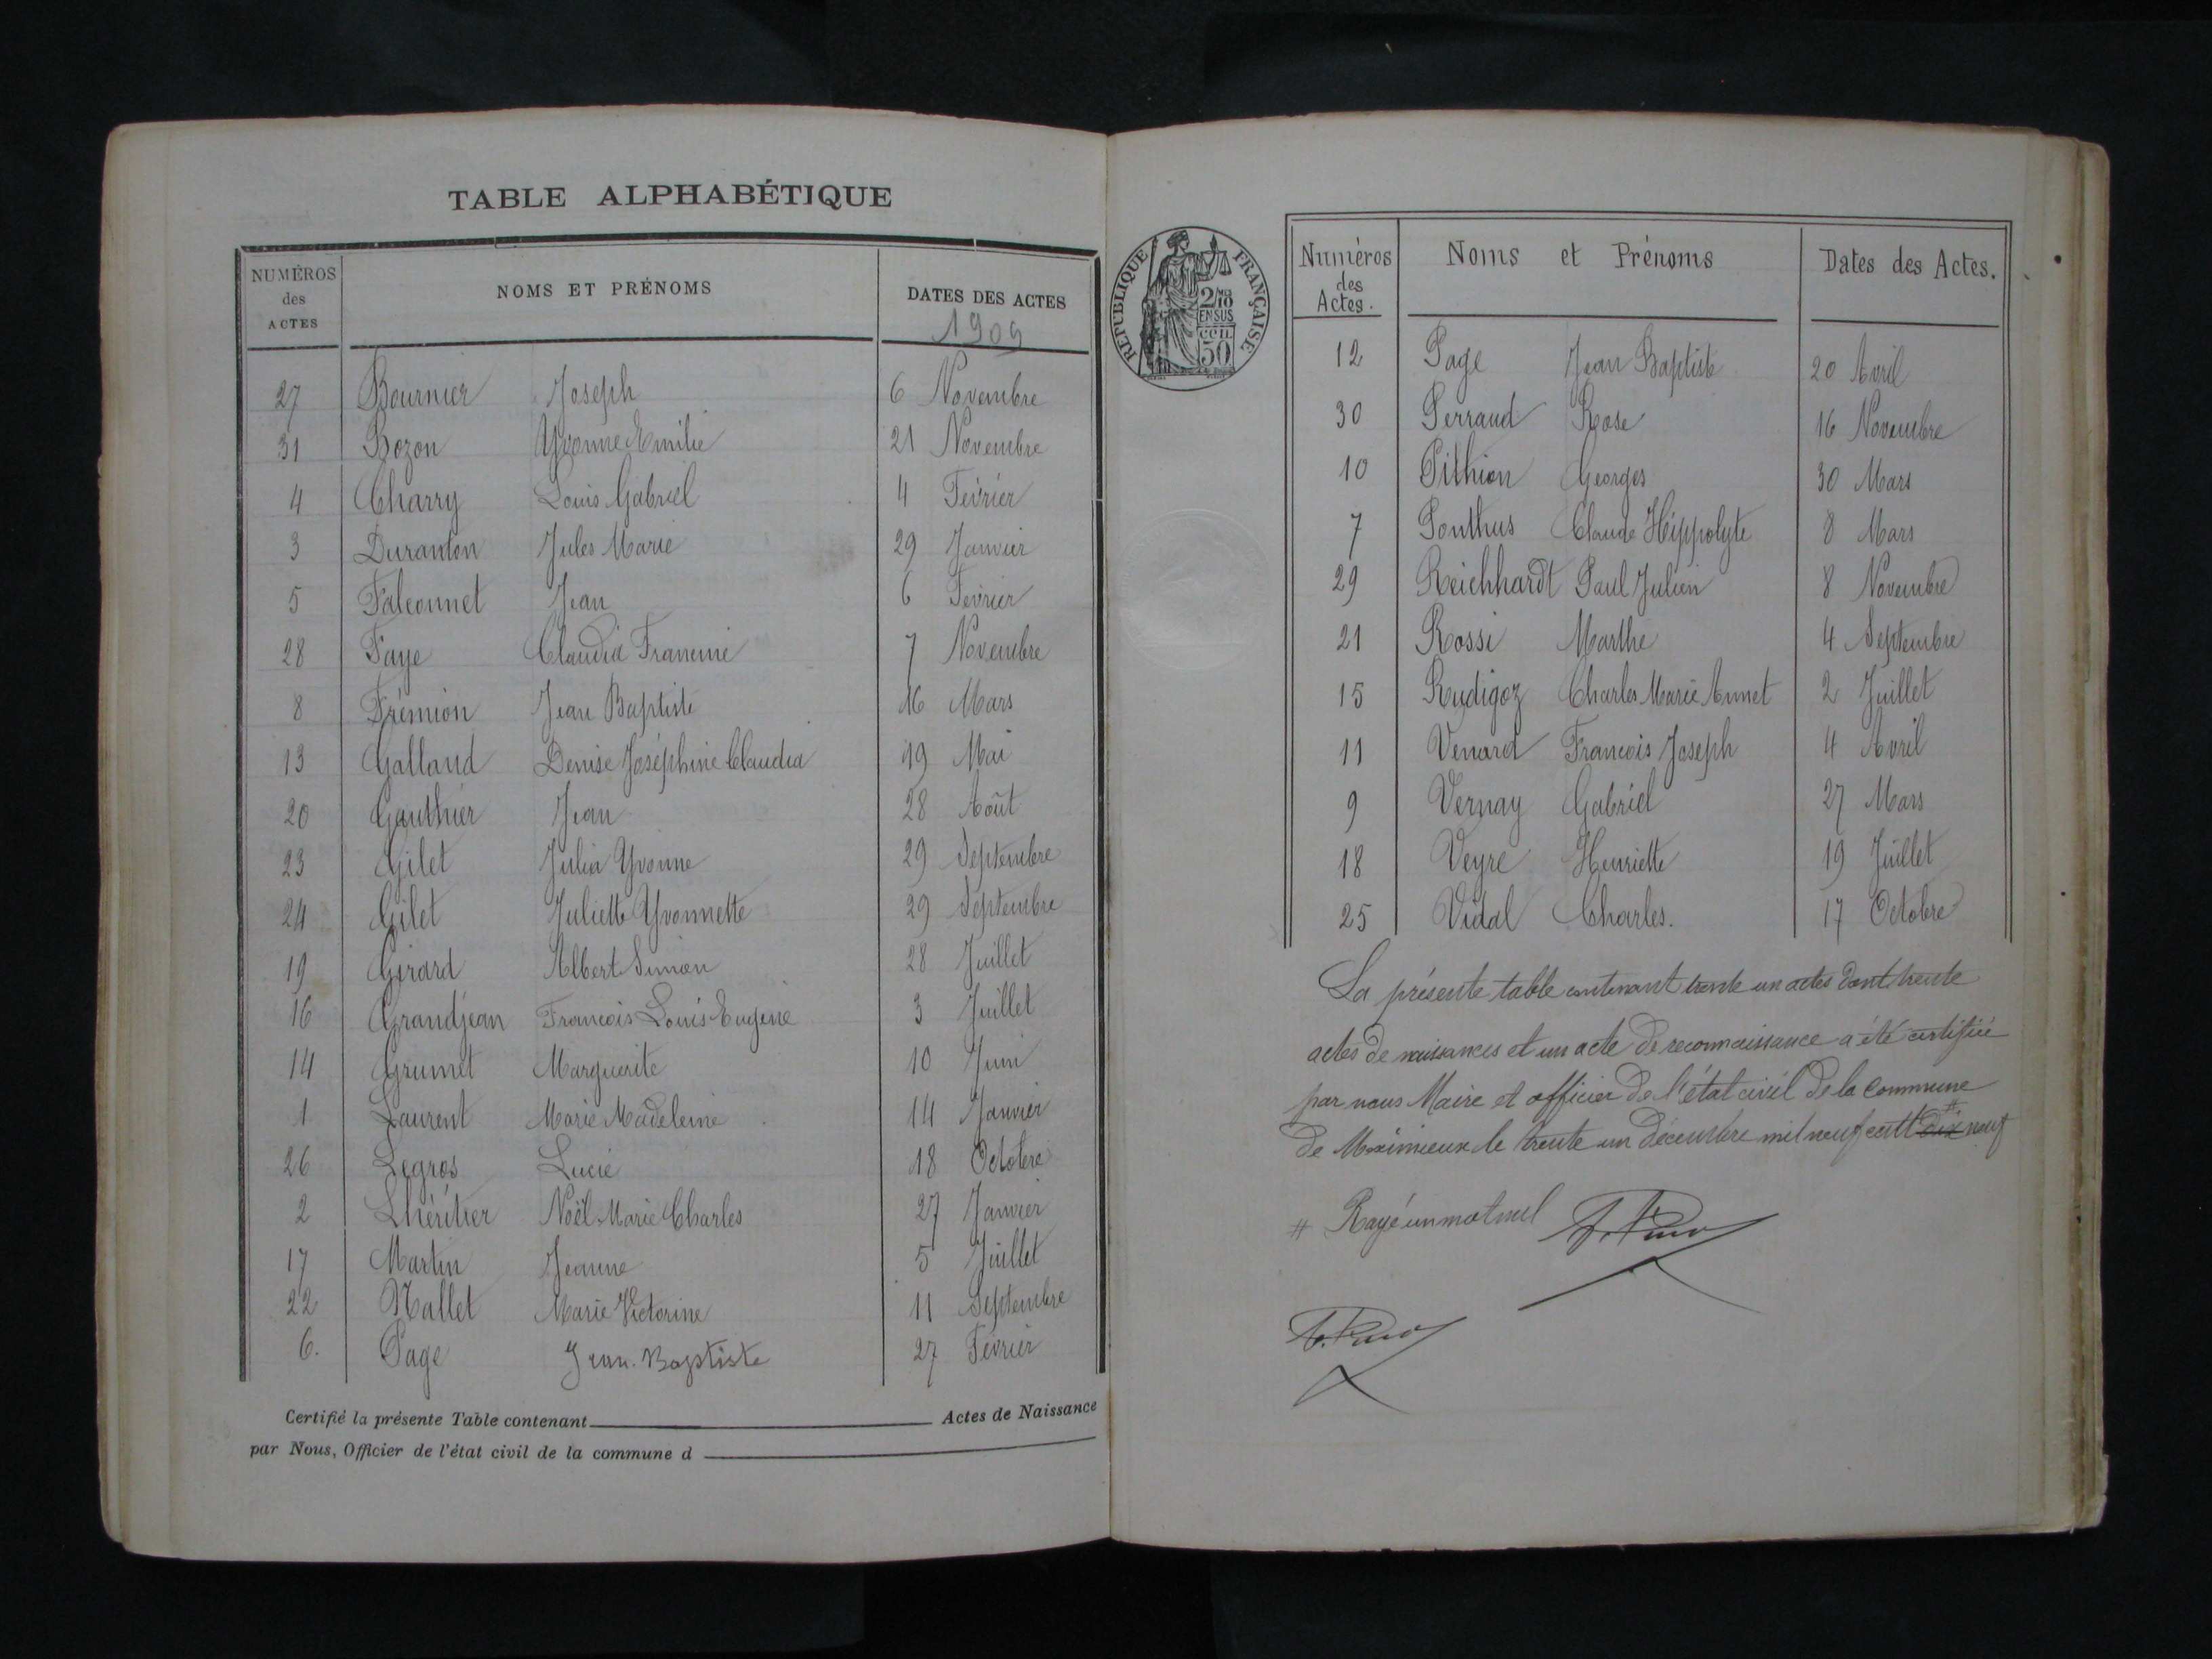 TABLE ALPHABÉTIQUE
NUMÉROS des ACTES NOMS ET PRÉNOMS DATES DES ACTES
1909
27 Bournier Joseph 6 Novembre
31 Bozon Yvonne Emilie 21 Novembre
4 Charry Louis Gabriel 4 Février
3 Duranton Jules Marie 29 Janvier
5 Falconnet Jean 6 Février
28 Faye Claudia Francine 7 Novembre
8 Frémion Jean Baptiste 16 Mars
13 Galland Denise Joséphine Claudia 19 Mai
20 Gauthier Jean 28 Août
23 Gilet Julia Yvonne 29 Septembre
24 Gilet Juliette Yvonnette 29 Septembre
19 Girard Albert Siméon 28 Juillet
16 Grandjean François Louis Eugène 3 Juillet
14 Grumet Marguerite 10 Juin
1 Laurent Marie Madeleine 14 Janvier
26 Legros Lucie 18 Octobre
2 Lhéritier Noël Marie Charles 27 Janvier
17 Martin Jeanne 5 Juillet
22 Nallet Marie Victorine 11 Septembre
6. Page Jean-Baptiste 27 Février
Certifié la présente Table contenant Actes de Naissance
par Nous, Officier de l'état civil de la commune d
REPUBLIQUE FRANÇAISE
2/10
EN SUS
50
Numéros des Actes. Noms et Prénoms Dates des Actes.
12 Page Jean Baptiste 20 Avril
30 Perraud Rose 16 Novembre
10 Pithion Georges 30 Mars
7 Ponthus Claude Hippolyte 8 Mars
29 Reichhardt Paul Julien 8 Novembre
21 Rossi Marthe 4 Septembre
15 Rudigoz Charles Marie Annet 2 Juillet
11 Venard François Joseph 4 Avril
9 Vernay Gabriel 27 Mars
18 Veyre Henriette 19 Juillet
25 Vidal Charles. 17 Octobre
La présente table contenant trente un actes dont trente
actes de naissances et un acte de reconnaissance a été certifiée
par nous Maire et officier de l'état civil de la Commune
de Meximieux le trente un décembre mil neuf cent dix # neuf
# Rayé un mot nul